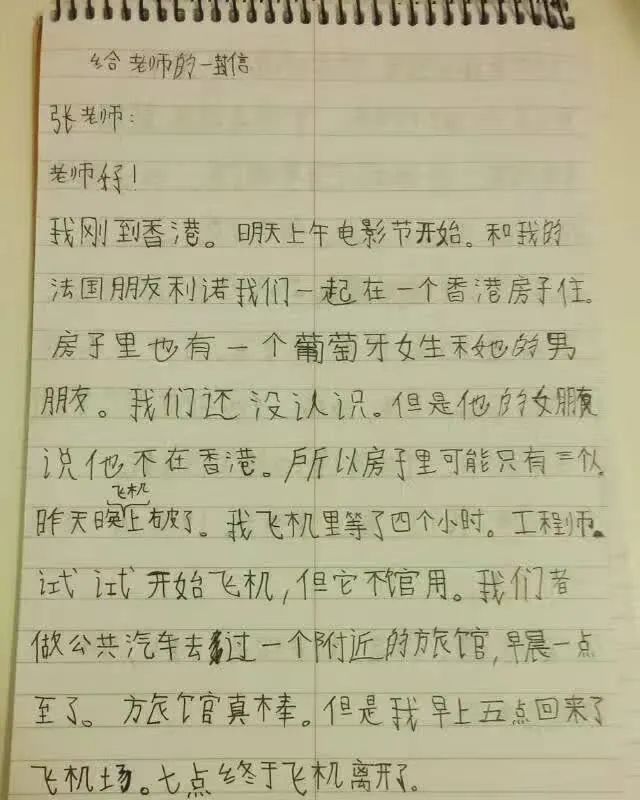 给老师的一封信
张老师：
老师好！
我刚到香港。明天上午电影节开始。和我的
法国朋友利诺我们一起在一个香港房子住。
房子里也有一个葡萄牙女生和她的男
朋友。我们还没认识。但是他的女朋友
说他不在香港。所以房子里可能只有三个人。
飞机
昨天晚上破了。我飞机里等了四个小时。工程师
试试开始飞机，但它不能用。我们者
做公共汽车去过一个附近的旅馆，早晨一点
至了。旅馆真棒。但是我早上五点回来了
飞机场。七点终于飞机离开了。